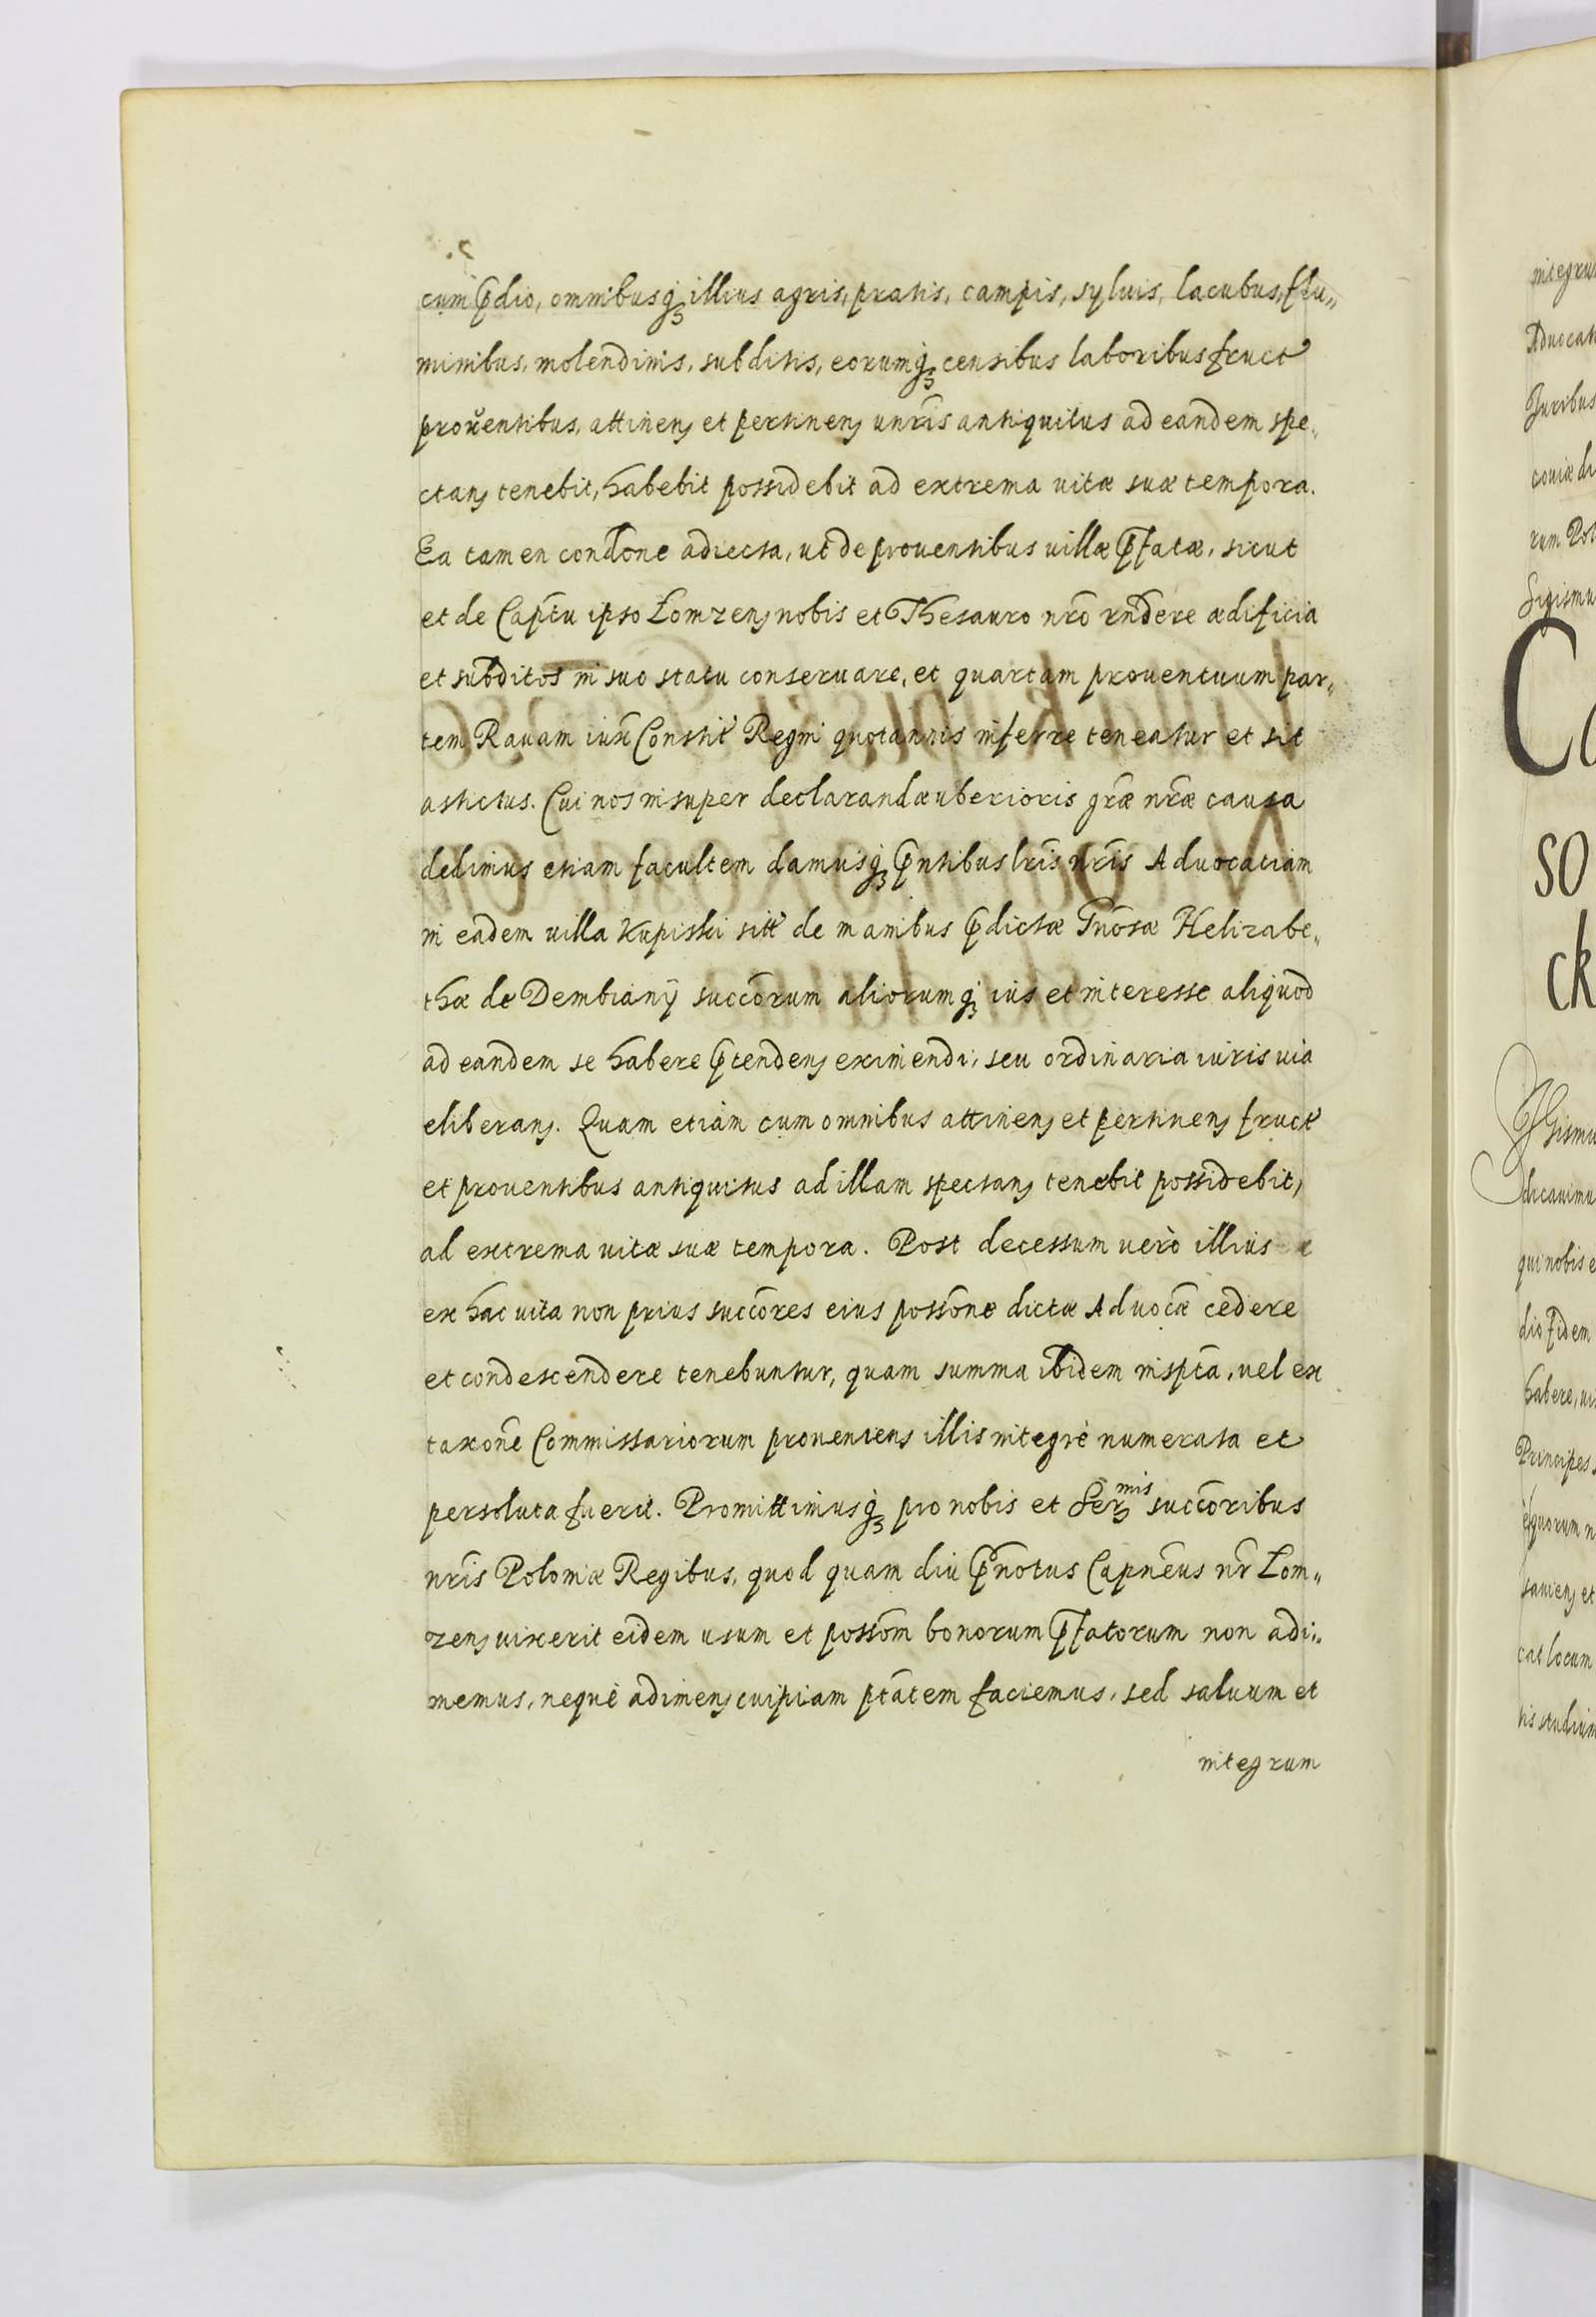 cum p̃dio, omnibusq́ȝ illius agris, pratis, campis, syluis, lacubus, flu„
minibus, molendinis, subditis, eorumq́ȝ censibus laboribus fruct
prouentibus, attinenȝ et pertinenȝ unr̃is antiquitus ad eandem spe„
ctanȝ tenebit, habebit possidebit ad extrema uitæ suæ tempora.
Ea tamen cond̃one adiecta, ut de prouentibus uillæ p̃fatæ, sicut
et de Cap̃tu ipso Lomzenȝ nobis et Thesauro nr̃o rñdere ædificia
et subditos in suo statu conseruare, et quartam prouentuum par„
tem Rauam iux̃ Constit Regni quotannis inferre teneatur et sit
astictus. Cui nos insuper declarandæ uberioris gr̃æ nr̃æ causa
dedimus etiam facultem damusq́ȝ p̃ntibus lr̃is nr̃is Aduocatiam
in eadem uilla Kupiski sitt de manibus p̃dictæ Gnõsæ Helizabe„
thæ de Dembiany succõrum aliorumq́ȝ ius et interesse aliquod
ad eandem se habere p̃tendenȝ eximendi, seu ordinaria iuris uia
eliberanȝ. Quam etiam cum omnibus attinenȝ et pertinenȝ fruct
et prouentibus antiquitus ad illam spectanȝ tenebit possidebit,
ad extrema uitæ suæ tempora. Post decessum uerò illius
ex hac uita non prius succõres eius possõne dictæ Aduoc̃æ cedere
et condescendere tenebuntur, quam summa ibidem insp̃ta, uel ex
taxõne Commissariorum proueniens illis integrè numerata et
persoluta fuerit. Promittimusq́ȝ pro nobis et Serȝmis succõribus
nr̃is Poloniæ Regibus, quod quam diu p̃notus Capnẽus nr̃ Lom„
zenȝ uixerit eidem usum et possõm bonorum p̃fatorum non adi„
memus, neque adimenȝ cuipiam ptãtem faciemus, sed saluum et
integrum